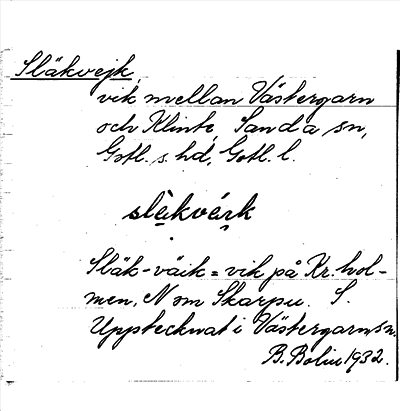 Släkvejk,
vik mellan Västergarn
och Klinte, Sanda sn,
Gotl. s. hd, Gotl. l.
slèkvé̩rk
Släk-väik = vik på Kr. hol-
men, N om Skarpu. S.
Upptecknat i Västergarn, sn.
B. Bolin 1932.